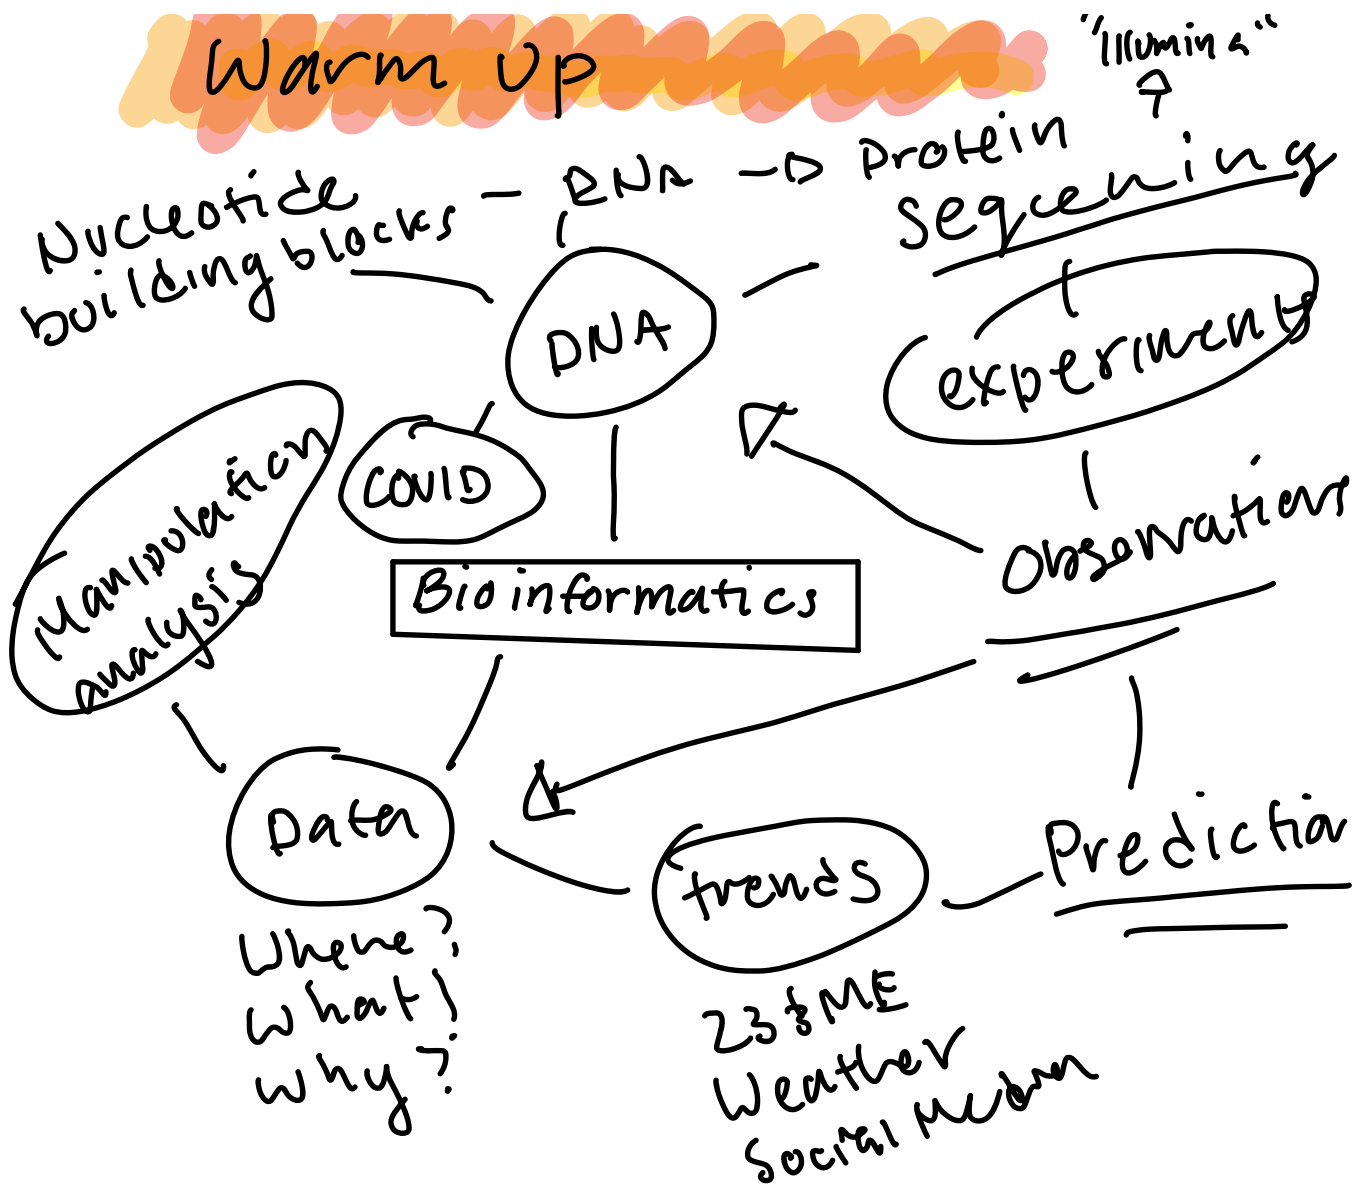 Warm Up
"Illumina"
Nucleotide
building blocks
RNA
Protein
Seqcening
DNA
experiments
COVID
Manipulation
analysis
Observations
Bioinformatics
Data
trends
Prediction
Where?
What?
Why?
23&ME
Weather
Social Media